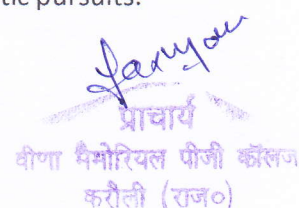 tic pursuits.
प्राचार्य
वीणा मैमोरियल पीजी कॉलेज
करौली (राज०)